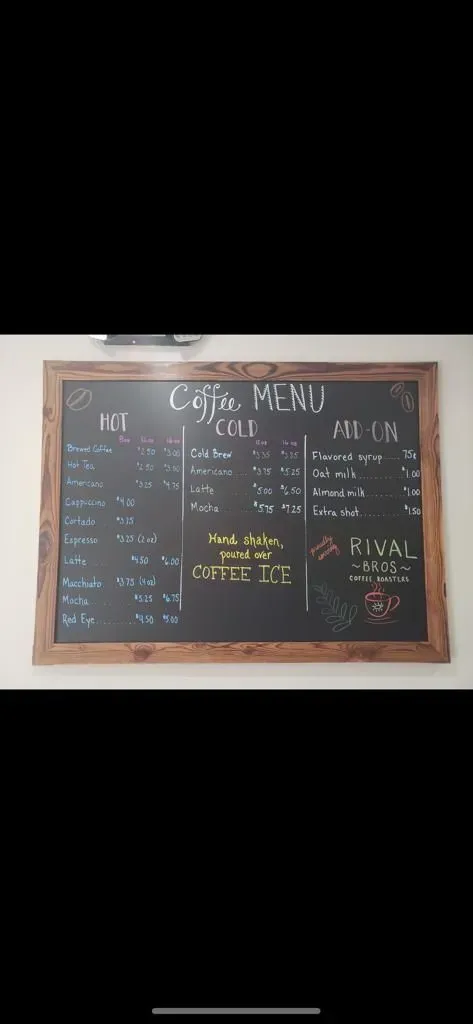 Coffee MENU
HOT
8oz 12oz 16oz
Brewed Coffee $2.50 $3.00
Hot Tea $2.50 $3.00
Americano $3.25 $4.75
Cappuccino $4.00
Cortado $3.75
Espresso $3.25 (2oz)
Latte $4.50 $6.00
Macchiato $3.75 (4oz)
Mocha $5.25 $6.75
Red Eye $4.50 $5.00
COLD
12oz 16oz
Cold Brew
Americano $3.75 $5.25
Latte $5.00 $6.50
Mocha $5.75 $7.25
Hand shaken,
poured over
COFFEE ICE
ADD-ON
Flavored syrup 75¢
Oat milk $1.00
Almond milk $1.00
Extra shot $1.50
proudly
RIVAL
~BROS~
COFFEE ROASTERS